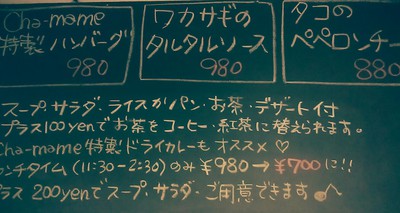 Cha-mame
特製 ハンバーグ
980
ワカサギの
タルタルソース
980
タコの
ペペロンチー
880
スープ・サラダ・ライスかパン・お茶・デザート付
プラス100yenでお茶をコーヒー・紅茶に替えられます。
Cha-mame 特製ドライカレーもオススメ♡
ンチタイム (11:30-2:30) のみ ¥980→¥700に!!
ラス 200yenでスープ・サラダ・ご用意できます。